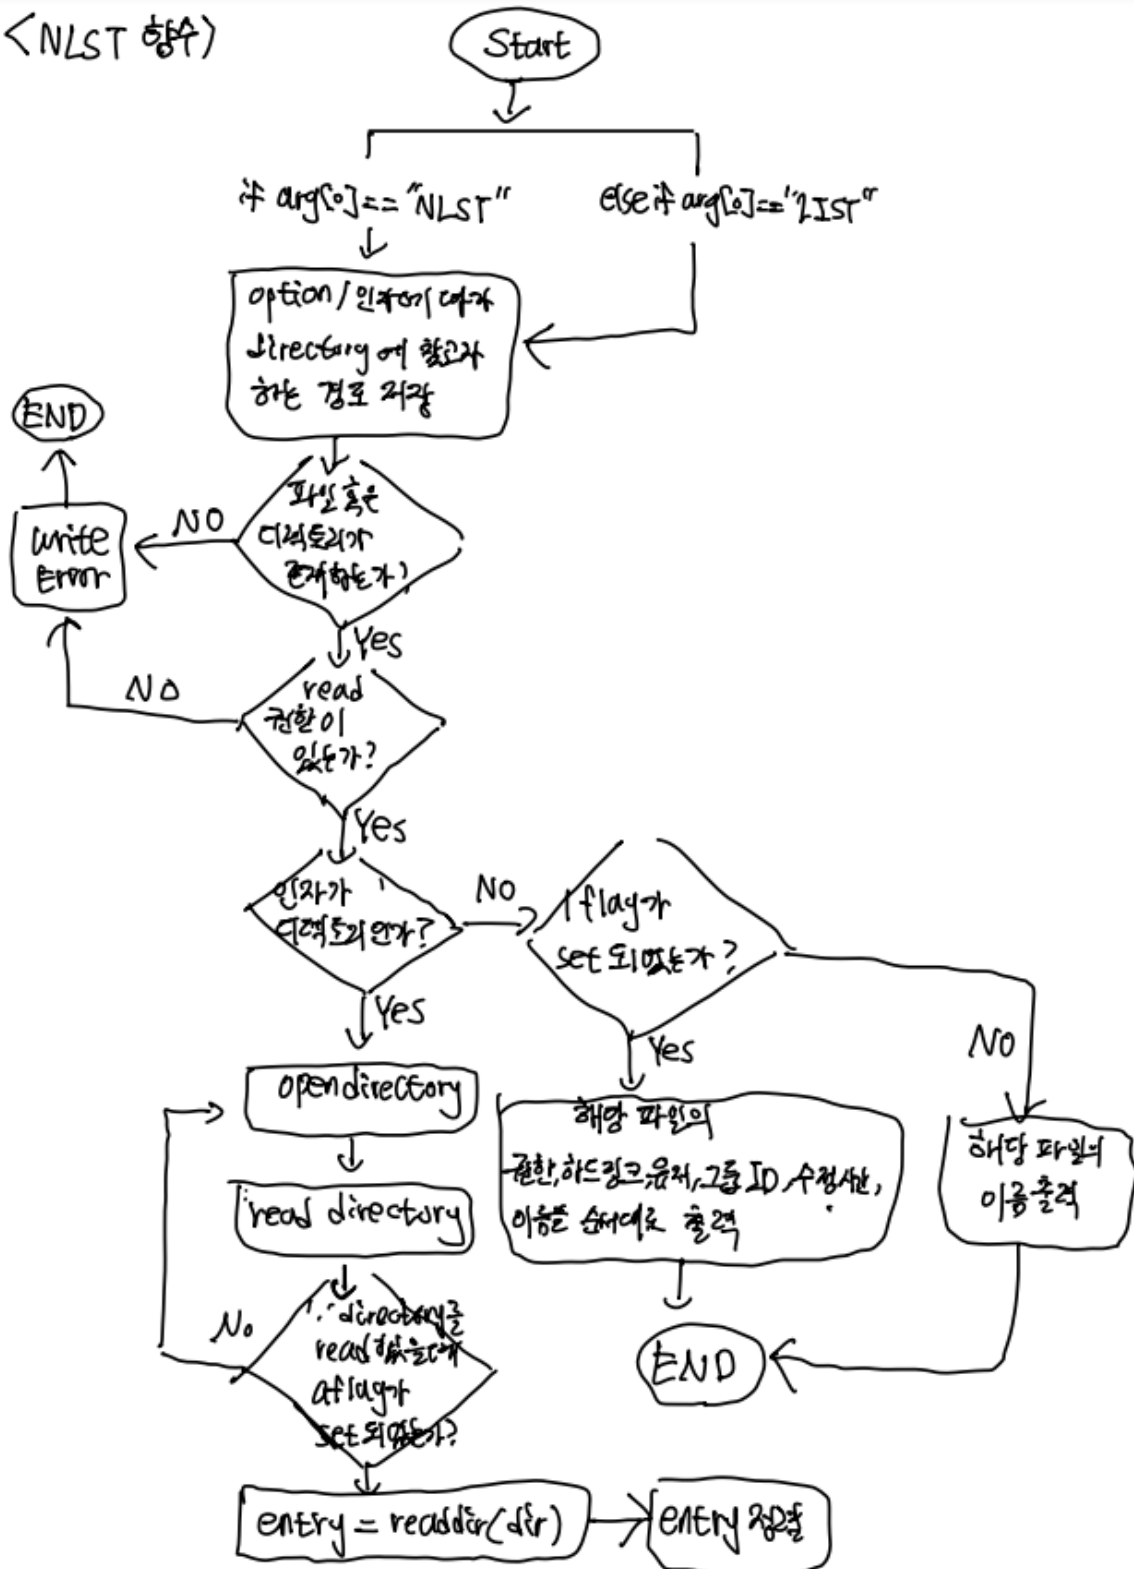 <NLST 함수>
Start
if arg[0]=="NLST"
else if arg[0]=="LIST"
option/인자에 따라
directory에 찾고자
하는 경로 저장
END
write
Error
NO
파일 혹은
디렉토리가
존재하는가?
Yes
NO
read
권한이
있는가?
Yes
인자가
디렉토리인가?
NO
l flag가
set 되있는가?
Yes
Yes
NO
opendirectory
해당 파일의
권한,하드링크,유저,그룹 ID,수정시간,
이름을 순서대로 출력
해당 파일의
이름출력
read directory
No
directory를
read 했을때
aflag가
set되있는가?
END
entry = readdir(dir)
entry 정렬